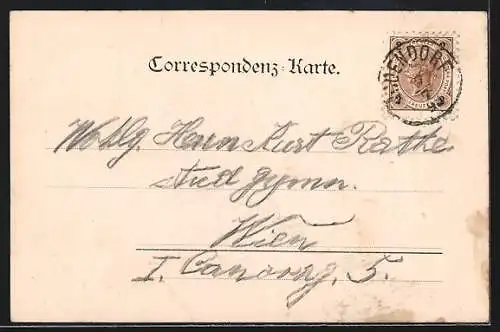 Correspondenz-Karte.
DENDORF
Wohlg. Herrn Kurt Rathe
stud. gymn.
Wien
I. Canovag. 5.